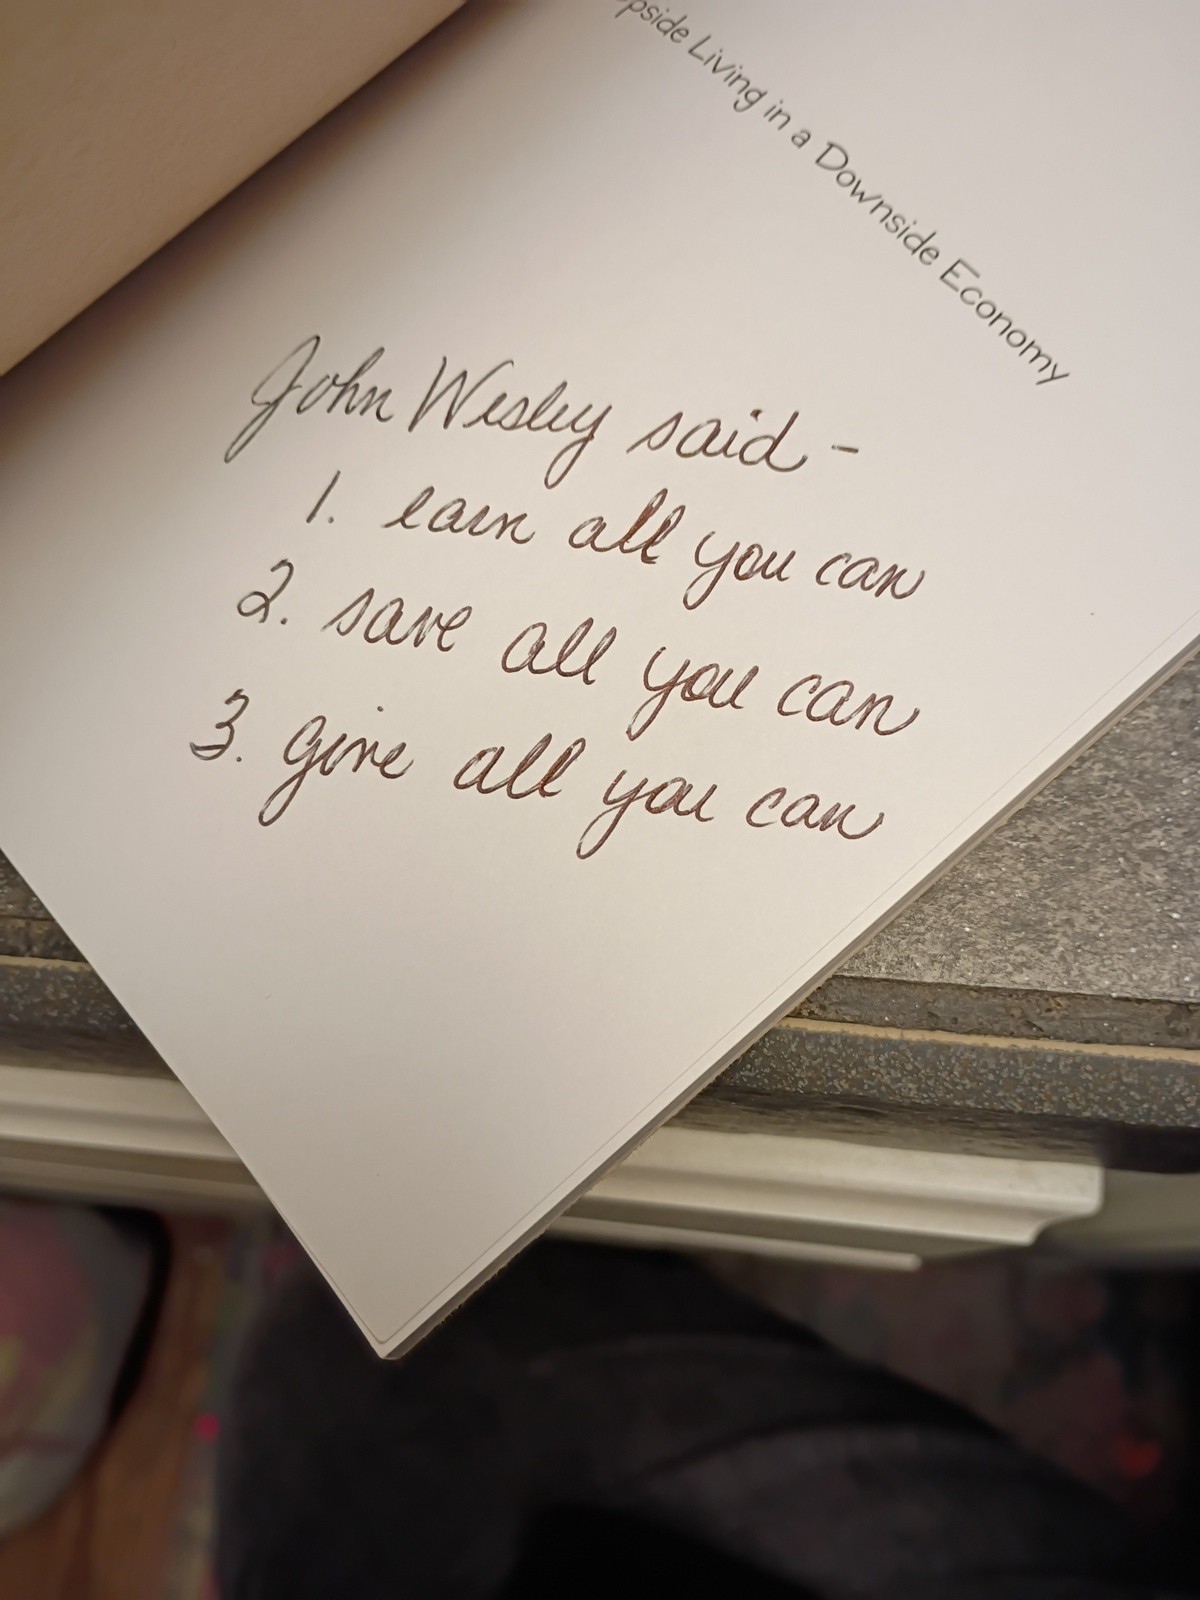 Upside Living in a Downside Economy
John Wesley said -
1. earn all you can
2. save all you can
3. give all you can